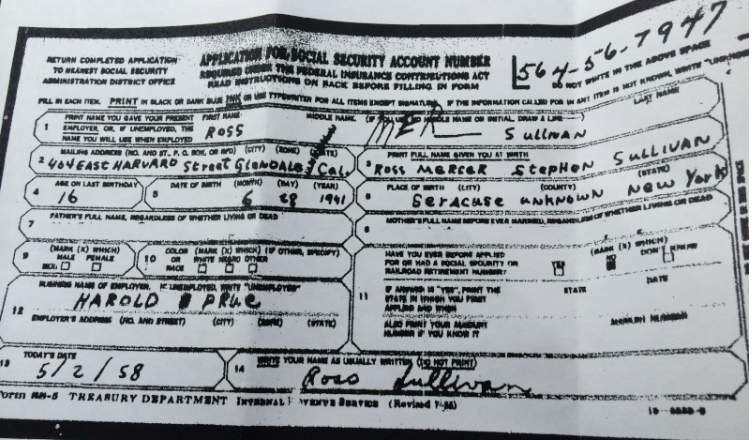 RETURN COMPLETED APPLICATION
TO NEAREST SOCIAL SECURITY
ADMINISTRATION DISTRICT OFFICE
APPLICATION FOR SOCIAL SECURITY ACCOUNT NUMBER
REQUIRED UNDER THE FEDERAL INSURANCE CONTRIBUTIONS ACT
READ INSTRUCTIONS ON BACK BEFORE FILLING IN FORM
564-56-7947
DO NOT WRITE IN THE ABOVE SPACE
FILL IN EACH ITEM. PRINT IN BLACK OR DARK BLUE INK OR USE TYPEWRITER FOR ALL ITEMS EXCEPT SIGNATURE. IF THE INFORMATION CALLED FOR IN ANY ITEM IS NOT KNOWN, WRITE "UNKNOWN"
1 PRINT NAME YOU GAVE YOUR PRESENT EMPLOYER, OR, IF UNEMPLOYED, THE NAME YOU WILL USE WHEN EMPLOYED
FIRST NAME MIDDLE NAME LAST NAME
ROSS MER SULLIVAN
2 MAILING ADDRESS (NO. AND ST., P. O. BOX, OR RFD) (CITY) (ZONE) (STATE)
404 EAST HARVARD Street GLENDALE Cal.
3 PRINT FULL NAME GIVEN YOU AT BIRTH
ROSS MERCER STEPHEN SULLIVAN
4 AGE ON LAST BIRTHDAY
16
5 DATE OF BIRTH (MONTH) (DAY) (YEAR)
6 28 1941
6 PLACE OF BIRTH (CITY) (COUNTY) (STATE)
Seracuse UNKNOWN NEW York
7 FATHER'S FULL NAME, REGARDLESS OF WHETHER LIVING OR DEAD
MOTHER'S FULL NAME BEFORE EVER MARRIED, REGARDLESS OF WHETHER LIVING OR DEAD
9 SEX: (MARK (X) WHICH) MALE FEMALE
10 COLOR OR RACE (MARK (X) WHICH) WHITE NEGRO OTHER (IF OTHER, SPECIFY)
HAVE YOU EVER BEFORE APPLIED FOR OR HAD A SOCIAL SECURITY OR RAILROAD RETIREMENT NUMBER?
(MARK (X) WHICH) YES NO DON'T KNOW
11 IF ANSWER IS "YES", PRINT THE STATE IN WHICH YOU FIRST APPLIED AND WHEN
STATE DATE
ALSO PRINT YOUR ACCOUNT NUMBER IF YOU KNOW IT
12 BUSINESS NAME OF EMPLOYER. IF UNEMPLOYED, WRITE "UNEMPLOYED"
HAROLD PRUE
EMPLOYER'S ADDRESS (NO. AND STREET) (CITY) (ZONE) (STATE)
13 TODAY'S DATE
5/2/58
14 WRITE YOUR NAME AS USUALLY WRITTEN (DO NOT PRINT)
Ross Sullivan
TREASURY DEPARTMENT INTERNAL REVENUE SERVICE